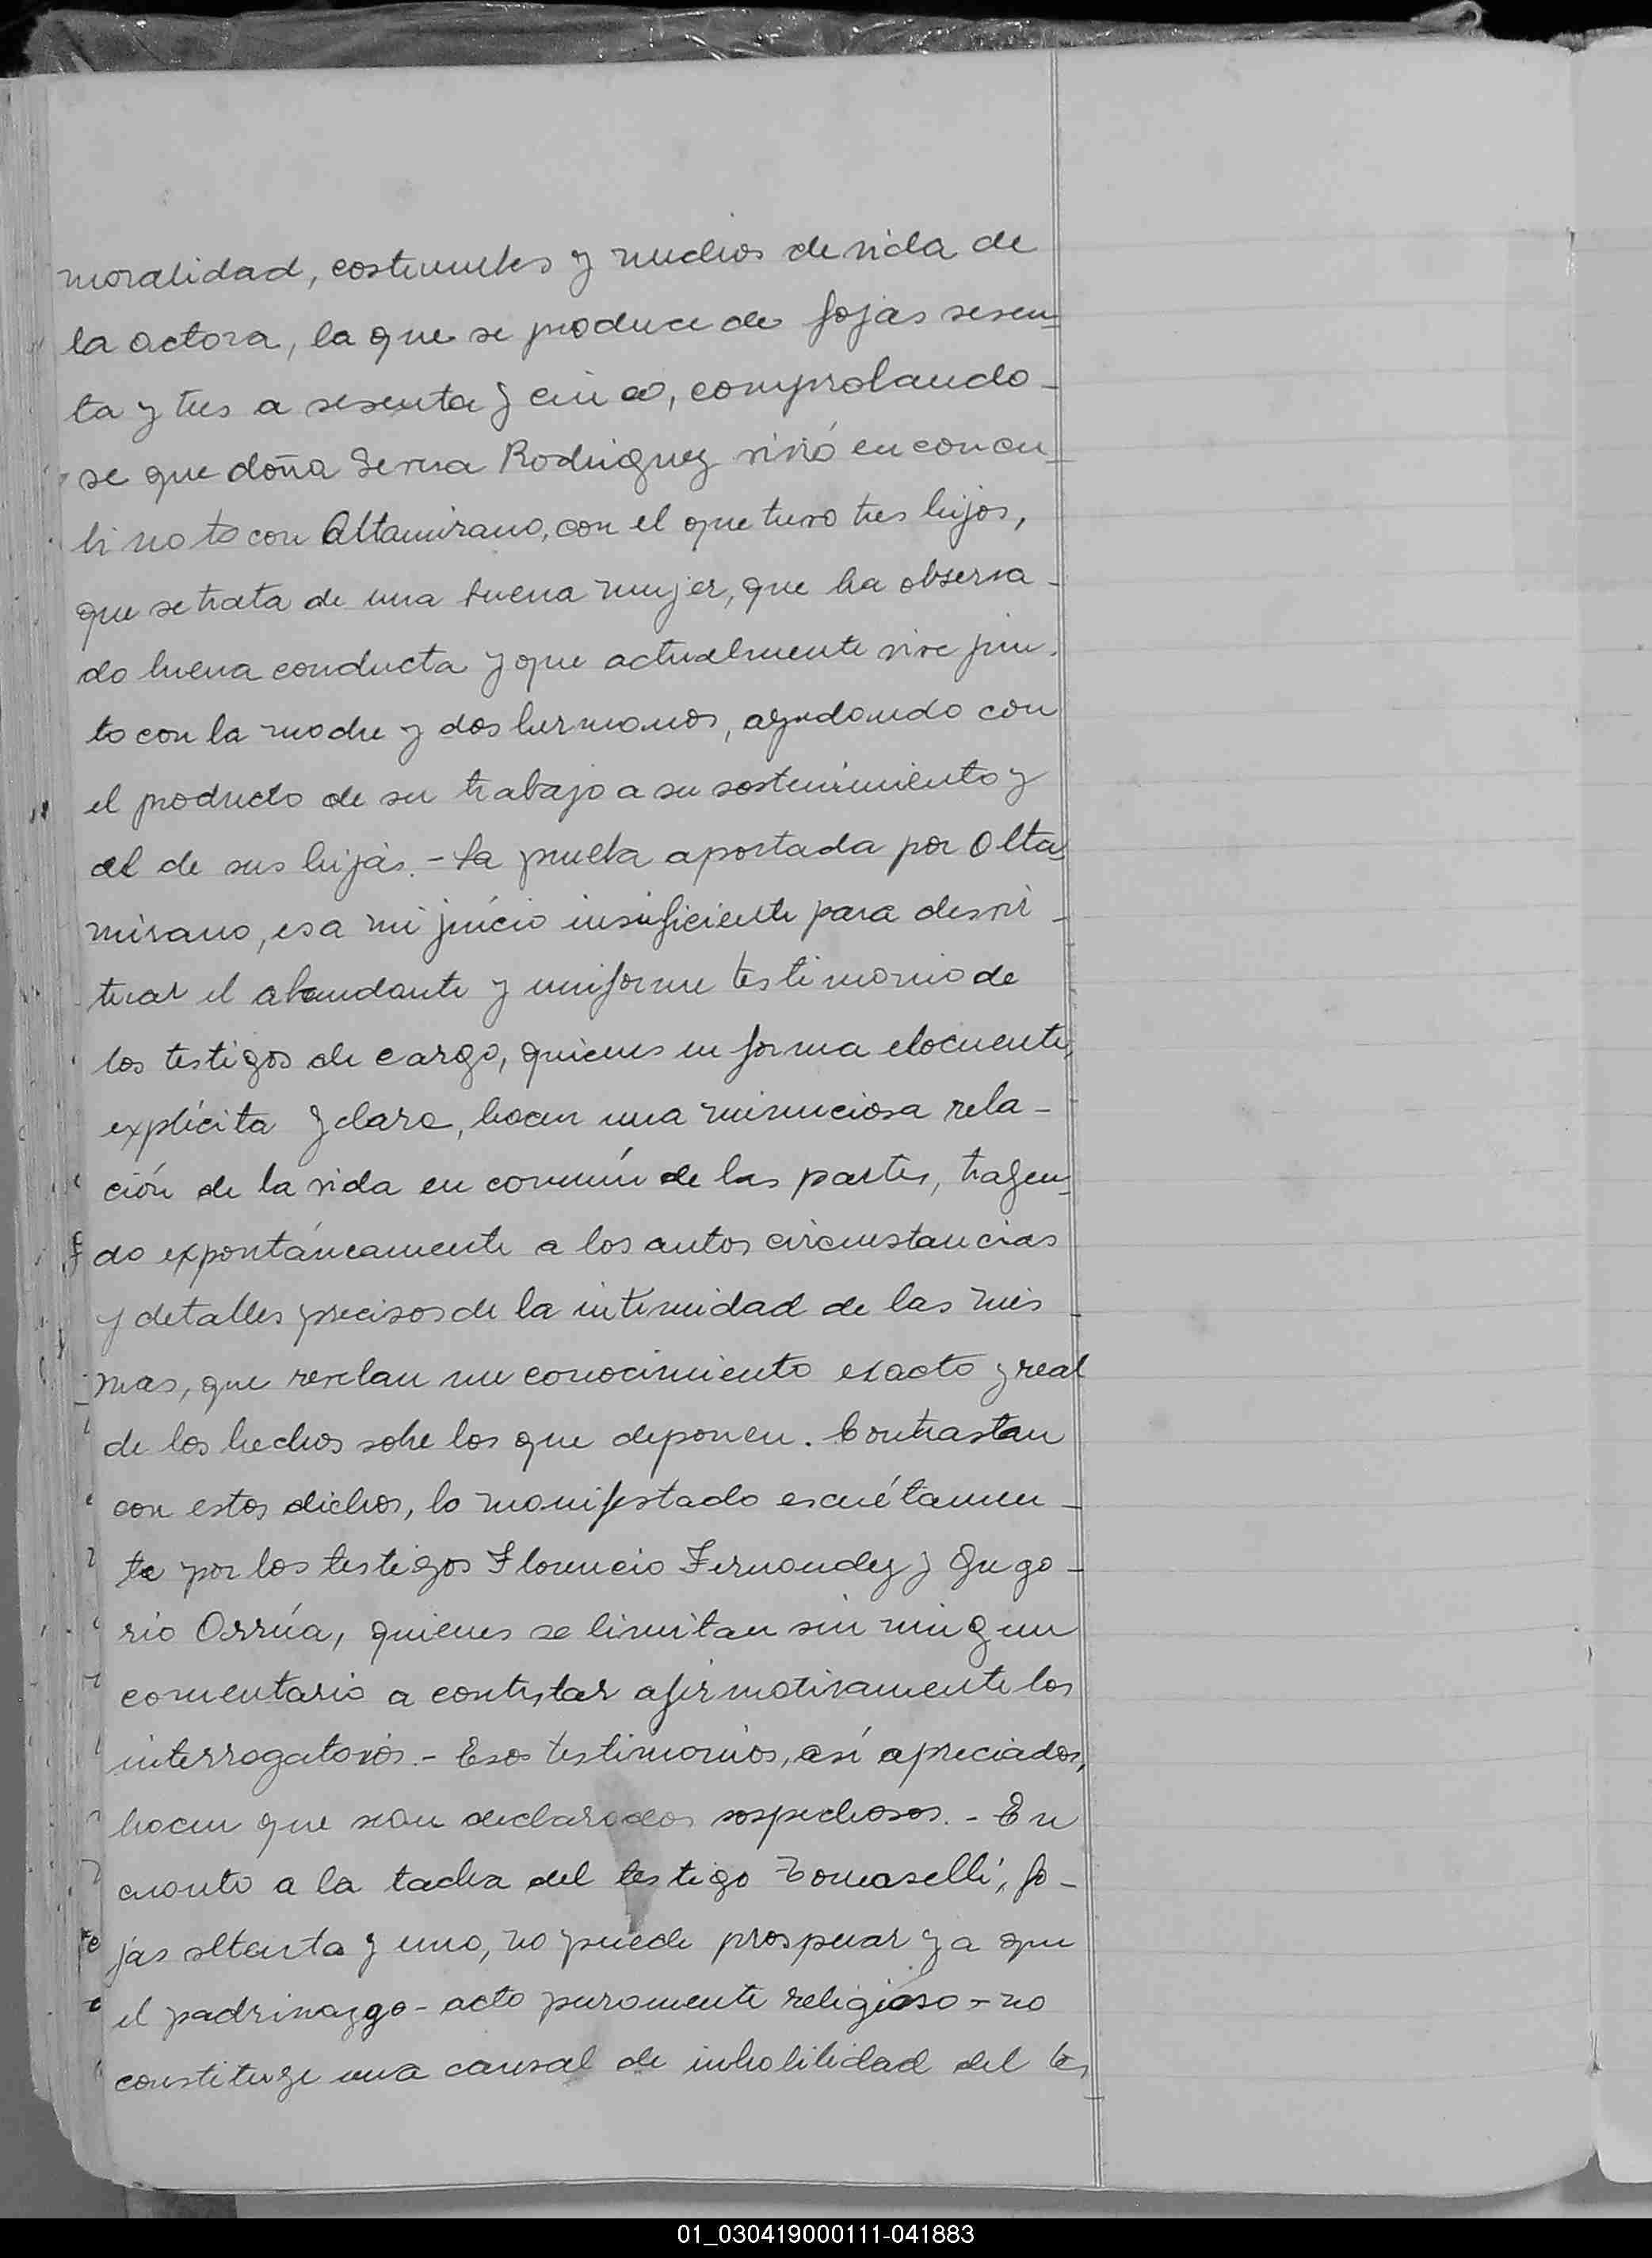 moralidad, costumbres y medios de vida de
la actora, la que se produce de fojas sesen-
ta y tres a sesenta y cinco, comprobando-
se que doña Rodriguez vivió en concu-
binato con Altamirano, con el que tuvo tres hijos,
que se trata de una buena mujer, que ha observa-
do buena conducta y que actualmente vive jun-
to con la madre y dos hermanos, ayudando con
el producto de su trabajo a su sostenimiento y
al de sus hijas.- La prueba aportada por Alta-
mirano, es a mi juício insuficiente para desvir-
tuar el abundante y uniforme testimonio de
los testigos de cargo, quienes en forma elocuente,
explícita y clara, hacen una minuciosa rela-
ción de la vida en común de las partes, trayen-
do expontáneamente a los autos circunstancias
y detalles precisos de la intimidad de las mis-
mas, que revelan un conocimiento exacto y real
de los hechos sobre los que deponen. Contrastan
con estos dichos, lo manifestado escuétamen-
te por los testigos Florencio Fernandez y Grego-
rio Orrúa, quienes se limitan sin ningun
comentario a contestar afirmativamente los
interrogatorios.- Esos testimonios, así apreciados,
hacen que sean declarados sospechosos.- En
cuanto a la tacha del testigo Tomaselli, fo-
jas setenta y uno, no puede prosperar ya que
el padrinazgo - acto puramente religioso - no
constituye una causal de inhabilidad del tes
01_030419000111-041883